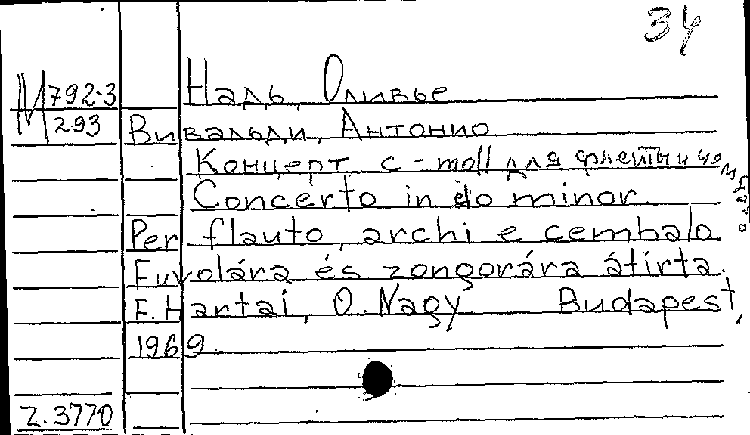 34
М 792-3
293
Надь, Оливье
Вивальди, Антонио
Концерт c-moll для флейты и чем
бало
Concerto in do minor.
Per flauto, archi e cembalo
Fuvolára és zongorára átírta
F. Hartai, O. Nagy Budapest,
1969.
Z.3770